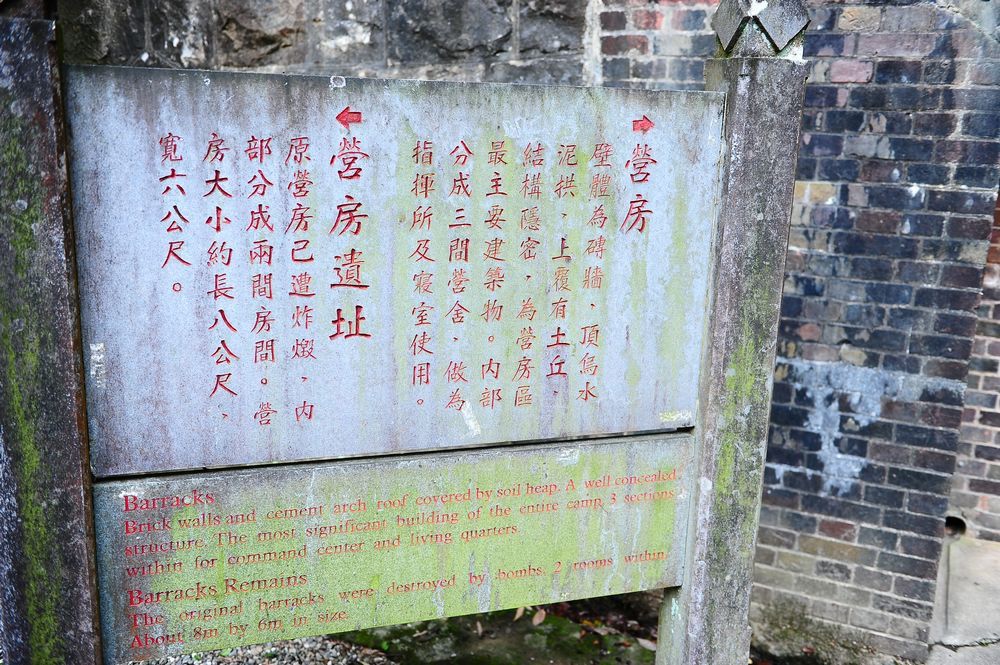 營房
壁體為磚牆、頂為水
泥拱、上覆有土丘、
結構隱密,為營房區
最主要建築物。內部
分成三間營舍,做為
指揮所及寢室使用。
營房遺址
原營房已遭炸燬、內
部分成兩間房間。營
房大小約長八公尺、
寬六公尺。
Barracks
Brick walls and cement arch roof covered by soil heap. A well concealed
structure. The most significant building of the entire camp. 3 sections
within for command center and living quarters
Barracks Remains
The original barracks were destroyed by bombs. 2 rooms within.
About 8m by 6m in size.